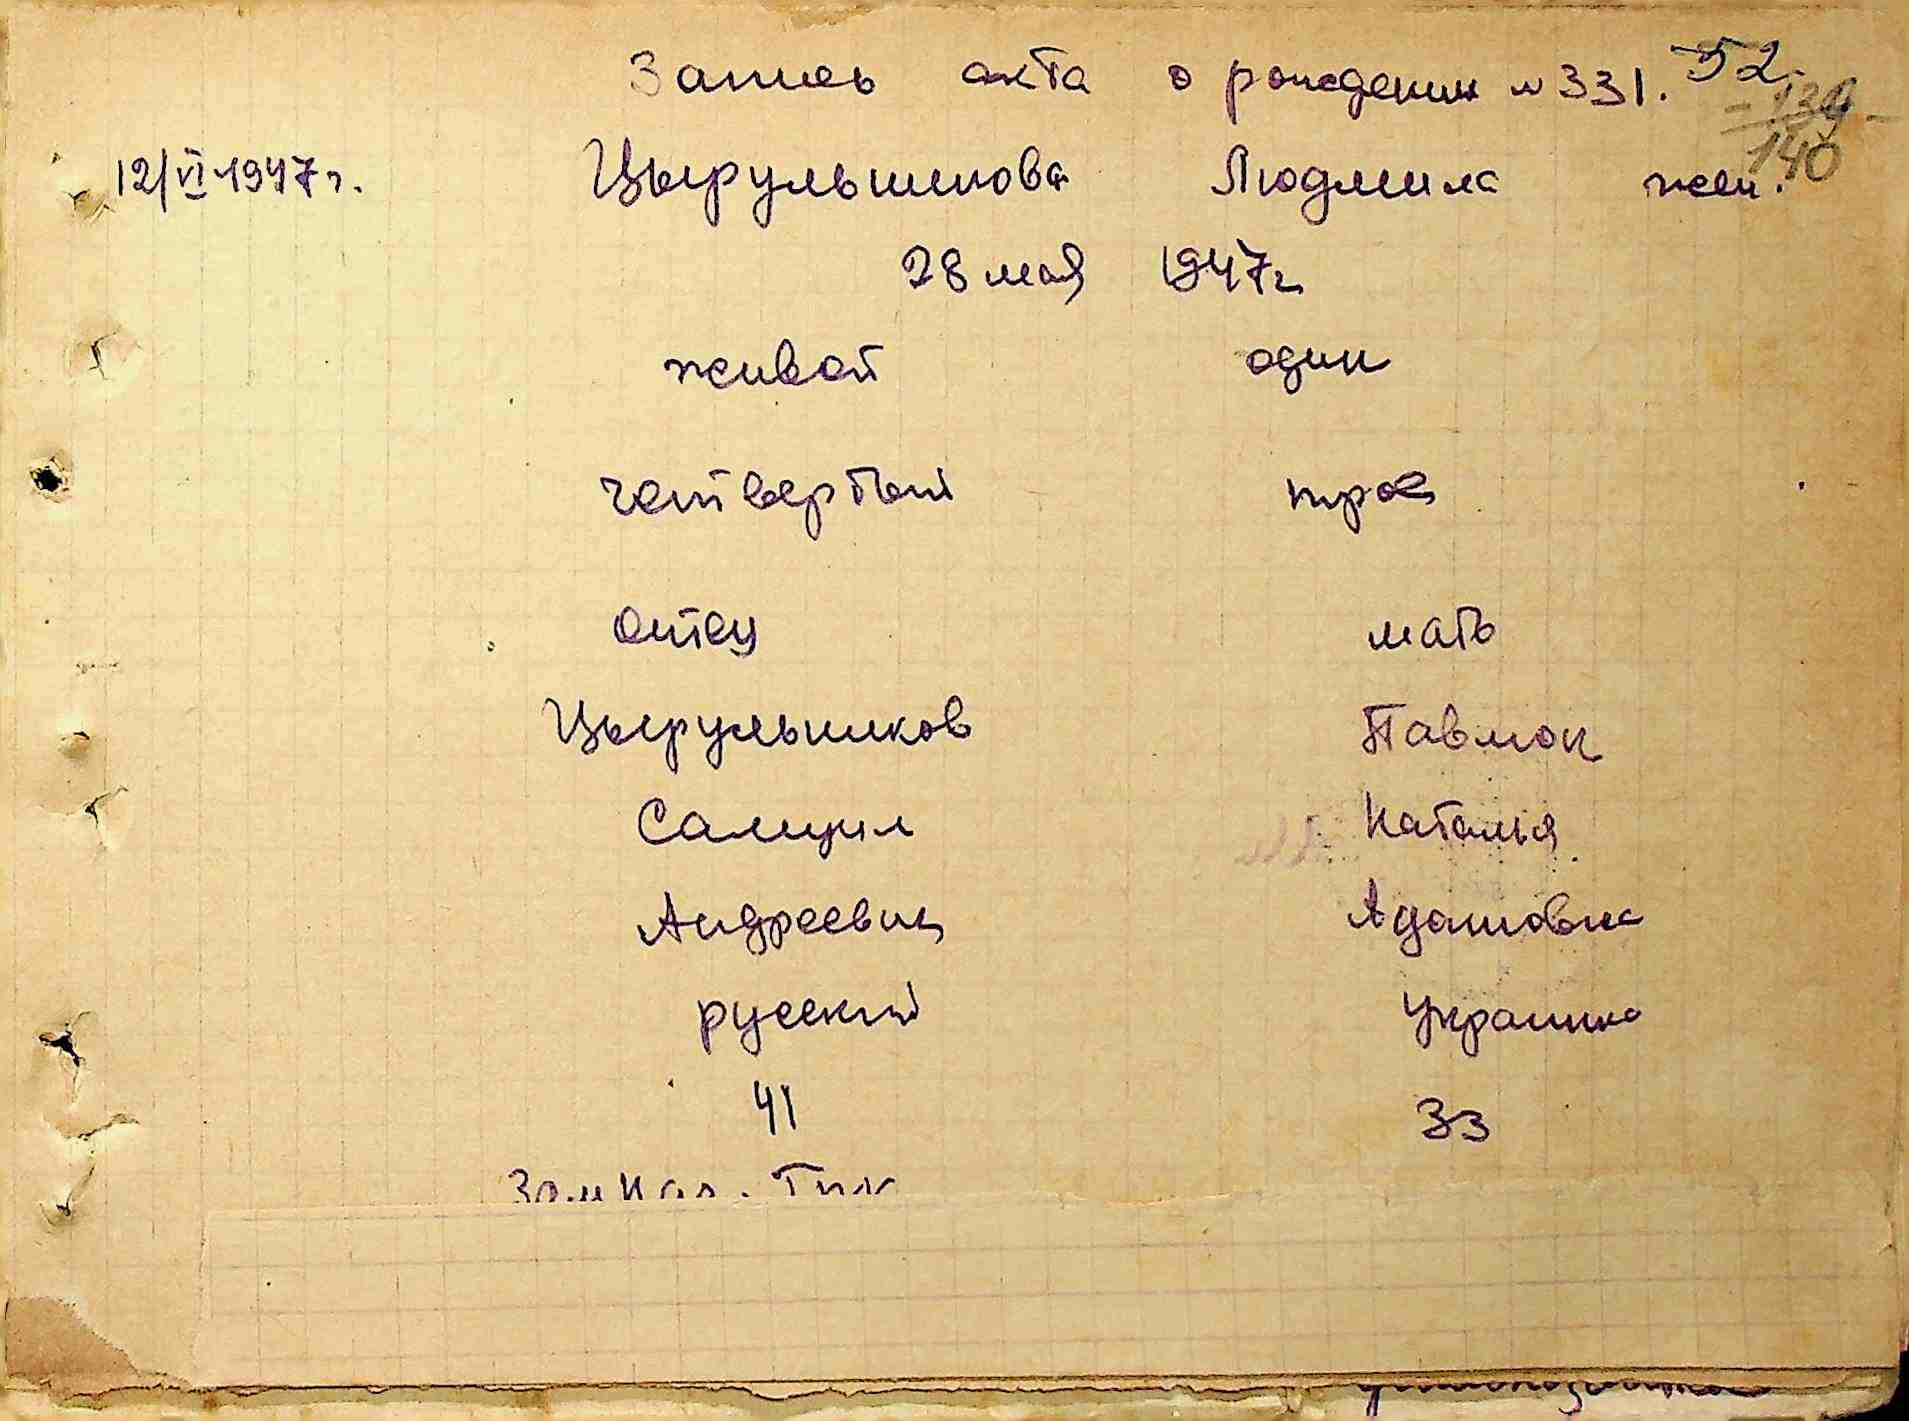 Запись акта о рождении № 331. 52.
139
140
12/VI-1947г. Цырульникова Людмила жен.
28 мая 1947г
живой один
четвертый трое
отец мать
Цырульников Павлюк
Самуил Наталья
Андреевич Адамовна
русский Украинка
41 33